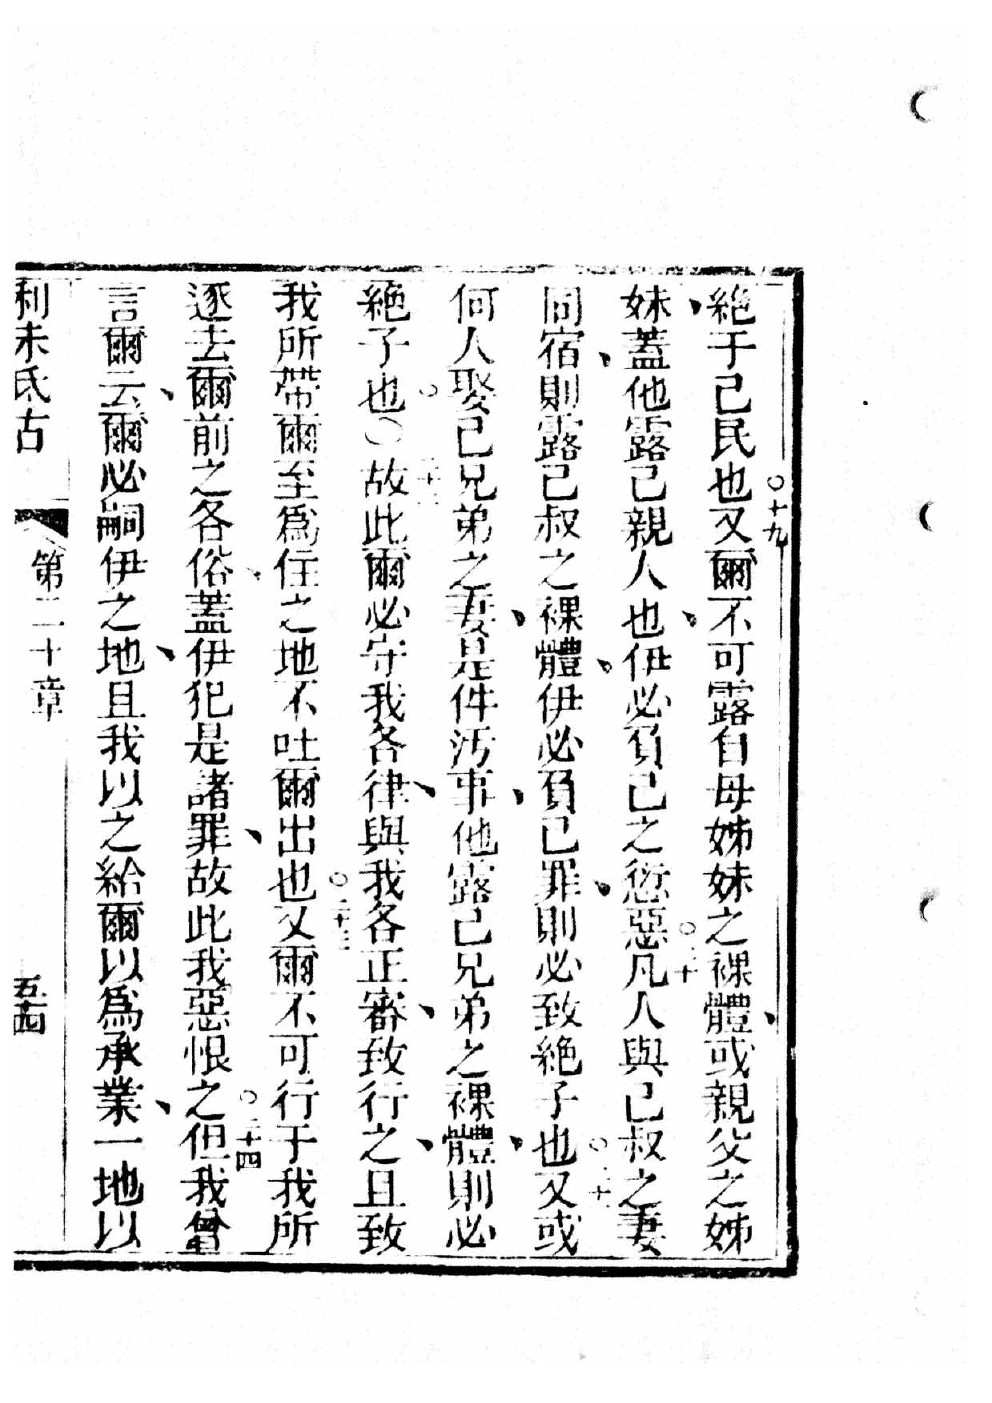 絶于己民也○十九又爾不可露自母姊妹之裸體、或親父之姊
、妹蓋他露己親人也、伊必負己之愆惡○二十凡人與己叔之妻
同宿、則露己叔之裸體、伊必負己罪、則必致絶子也○二十又或
何人娶己兄弟之妻、是件汚事、他露己兄弟之裸體、則必
絶子也○故此爾必守我各律、與我各正審、致行之、且致
我所帶爾至爲住之地不吐爾出也○二十三又爾不可行于我所
逐去爾前之各俗、蓋伊犯是諸罪、故此我惡恨之○二十四但我曾
言爾云、爾必嗣伊之地、且我以之給爾以爲承業、一地以
利未氏古
第二十章
五十四